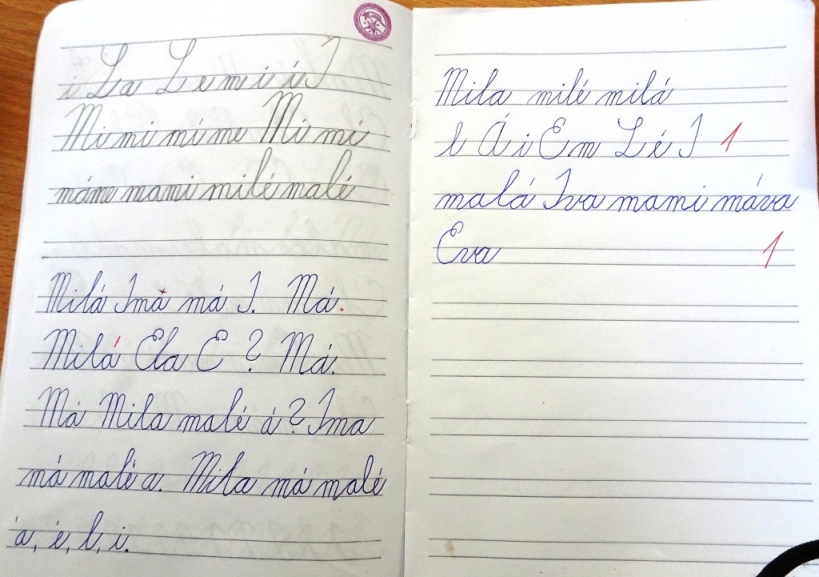 i La Le m i í J
Mi mi mí me Mi mi
máme mami milé malé
Milá Ima má J. Má.
Milá Ela E ? Má.
Má Mila malé á? Ima
má malé a. Mila má malé
á, é, l, i.
Mila milé milá
l Á i E m L é J 1
malá Iva mami máva
Eva 1